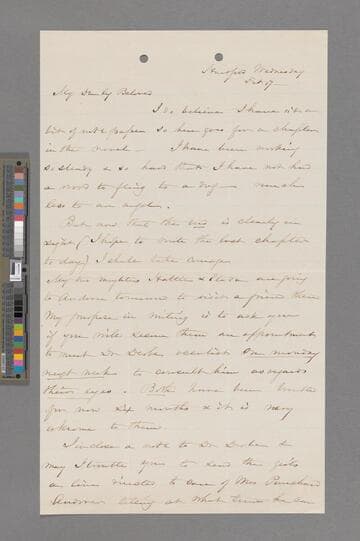 Wednesday
Oct 17
My Dearly Beloved
I do believe I have not a
bit of note paper so here goes for a chapter
in the novel — I have been working
so steady & so hard that I have not had
a word to fling to a dog — much
less to an angel.
But now that the end is clearly in
sight (I hope to write the last chapter
to day) I shall take courage
My two daughters Hattie & Eliza are going
to Andover tomorrow to visit a friend there
My purpose in writing is to ask you
if you will secure them an appointment
to meet Dr oculist on monday
next week to consult him as regards
their eyes. Both have been
for now six months & it is very
to them.
I inclose a note to Dr &
may I trouble you to send the girls
a line directed to care of Mrs Punchard
Andover telling at what time he can